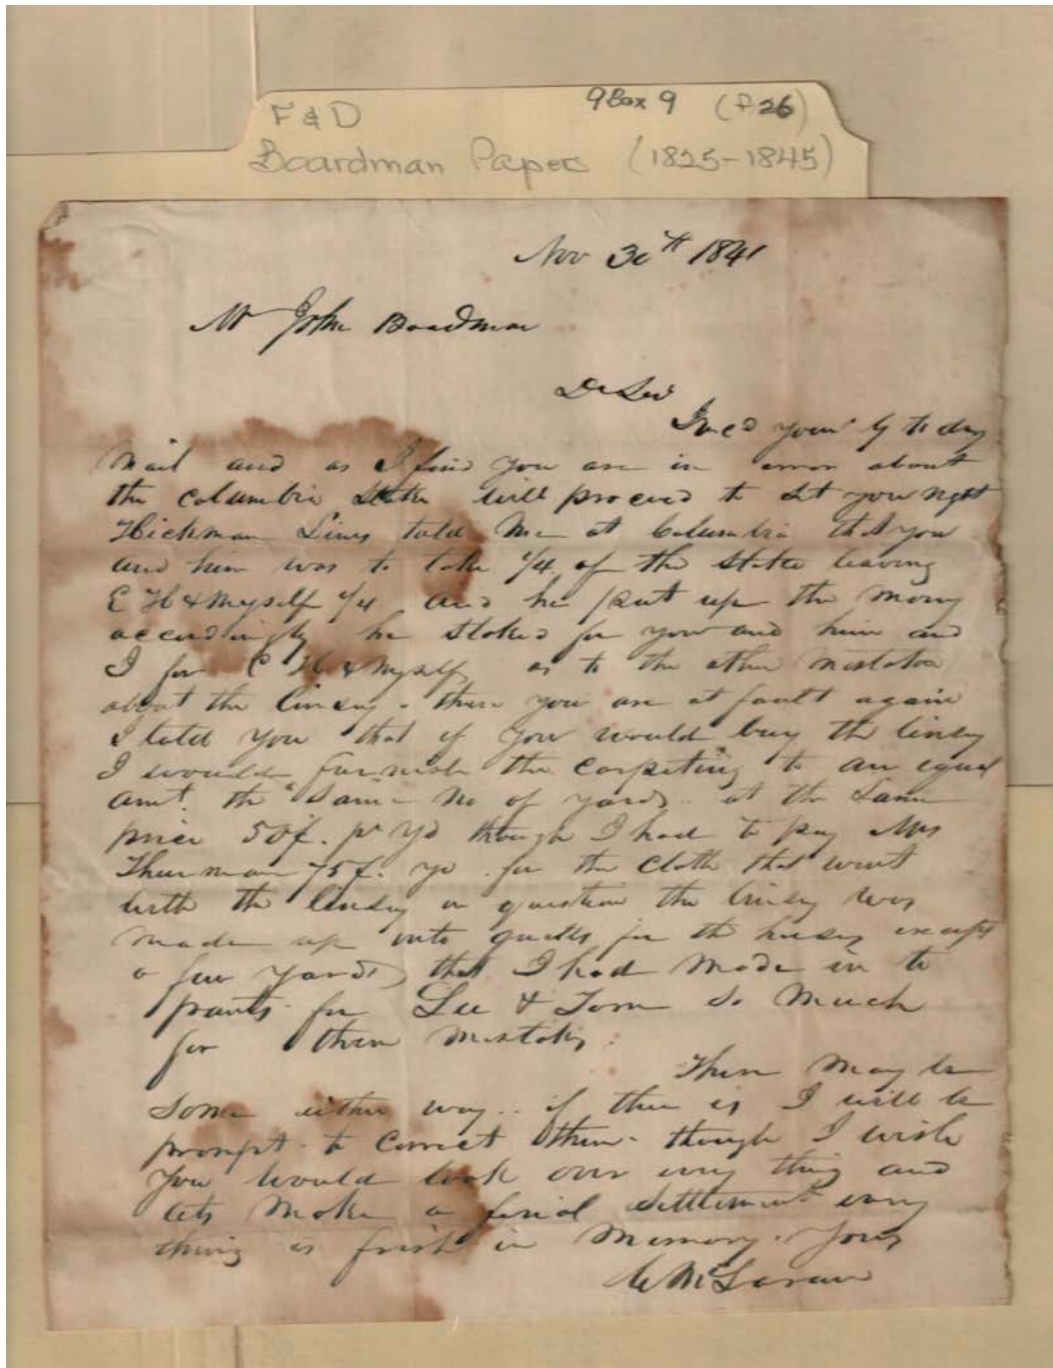 F & D 9Box 9 (f 26)
Boardman Paper (1825-1845)
Nov 30th 1841
Mr John Boardman
Dr Sir
I recd your to day
Mail and as I find you are in error about
the columbia stake will proceed to set you right
Hickman Lewis told me at Columbia that you
and him was to take 1/4 of the stake leaving
E H & myself 1/4 and he put up the money
accordingly he staked for you and him and
I for E H & myself as to the other mistake
about the linsey - there you are at fault again
I told you that if you would buy the linsey
I would furnish the carpeting to an equal
amt. the same No of yards at the same
price 50¢. pr yd though I had to pay Mrs
Thurman 75¢. yd for the cloth that went
with the linsey in question the linsey was
made up into quilts for the house except
a few yards that I had made in to
pants for Lee & Tom so much
for them mistakes
There may be
some either way.. if there is I will be
prompt to correct them - though I wish
you would look over every thing and
lets make a final settlement every
thing is fresh in memory. Yours
C McLaran